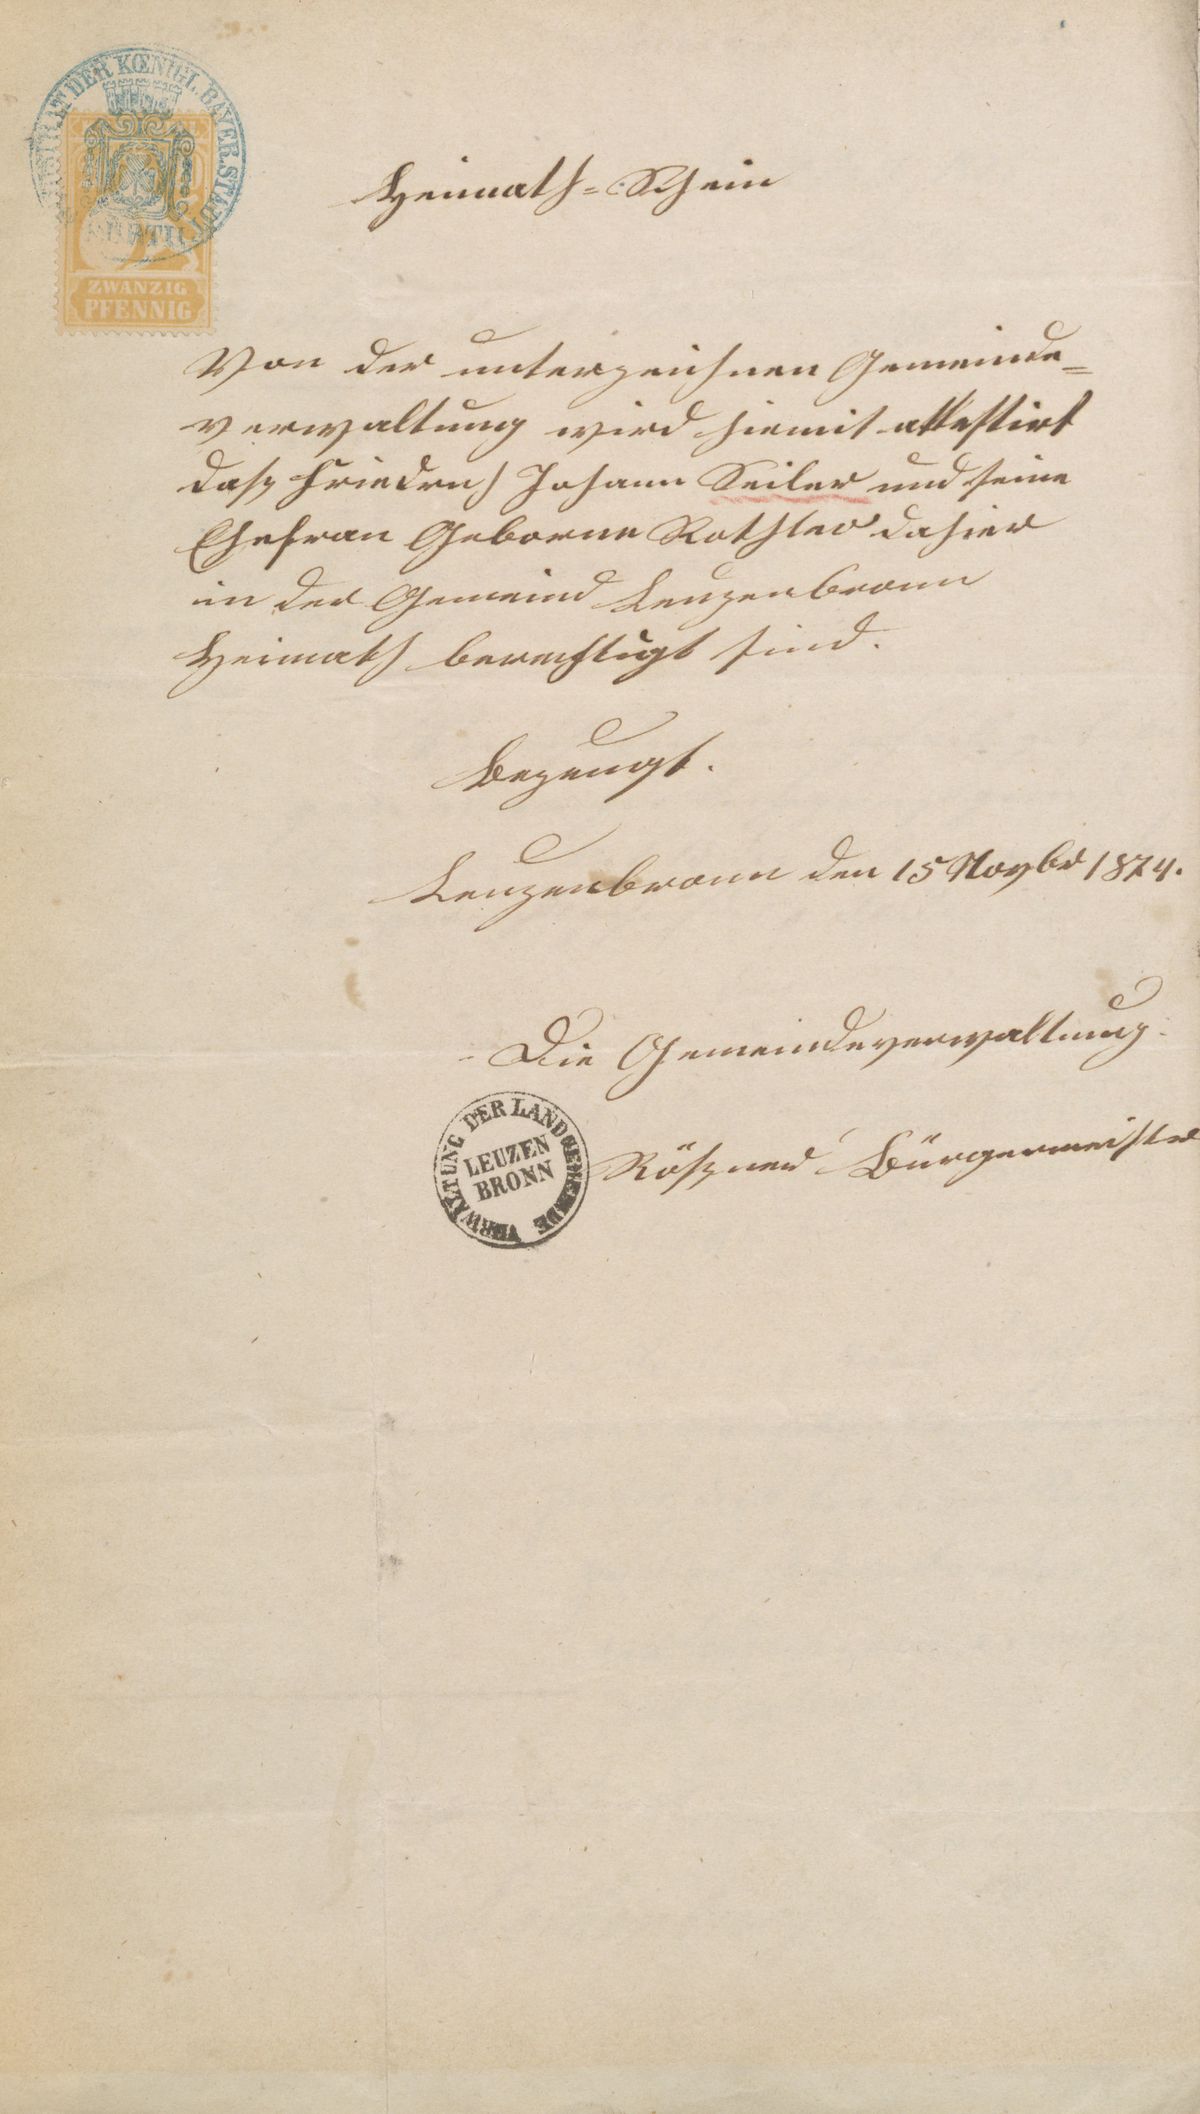 MAGISTRAT DER KŒNIGL. BAYER. STADT
FÜRTH
ZWANZIG
PFENNIG
Heimath=Schein
Von der unterzeichnen Gemeinde=
verwaltung wird hiemit attestirt
daß Friedrich Johann Seiler und seine
Ehefrau Geborne dahier
in der Gemeind Leuzenbronn
Heimath berechtigt sind.
Bezeugt.
Leuzenbronn den 15 Novbr 1874.
Die Gemeindeverwaltung.
VERWALTUNG DER LANDGEMEINDE
LEUZEN
BRONN
Rößner Bürgermeister